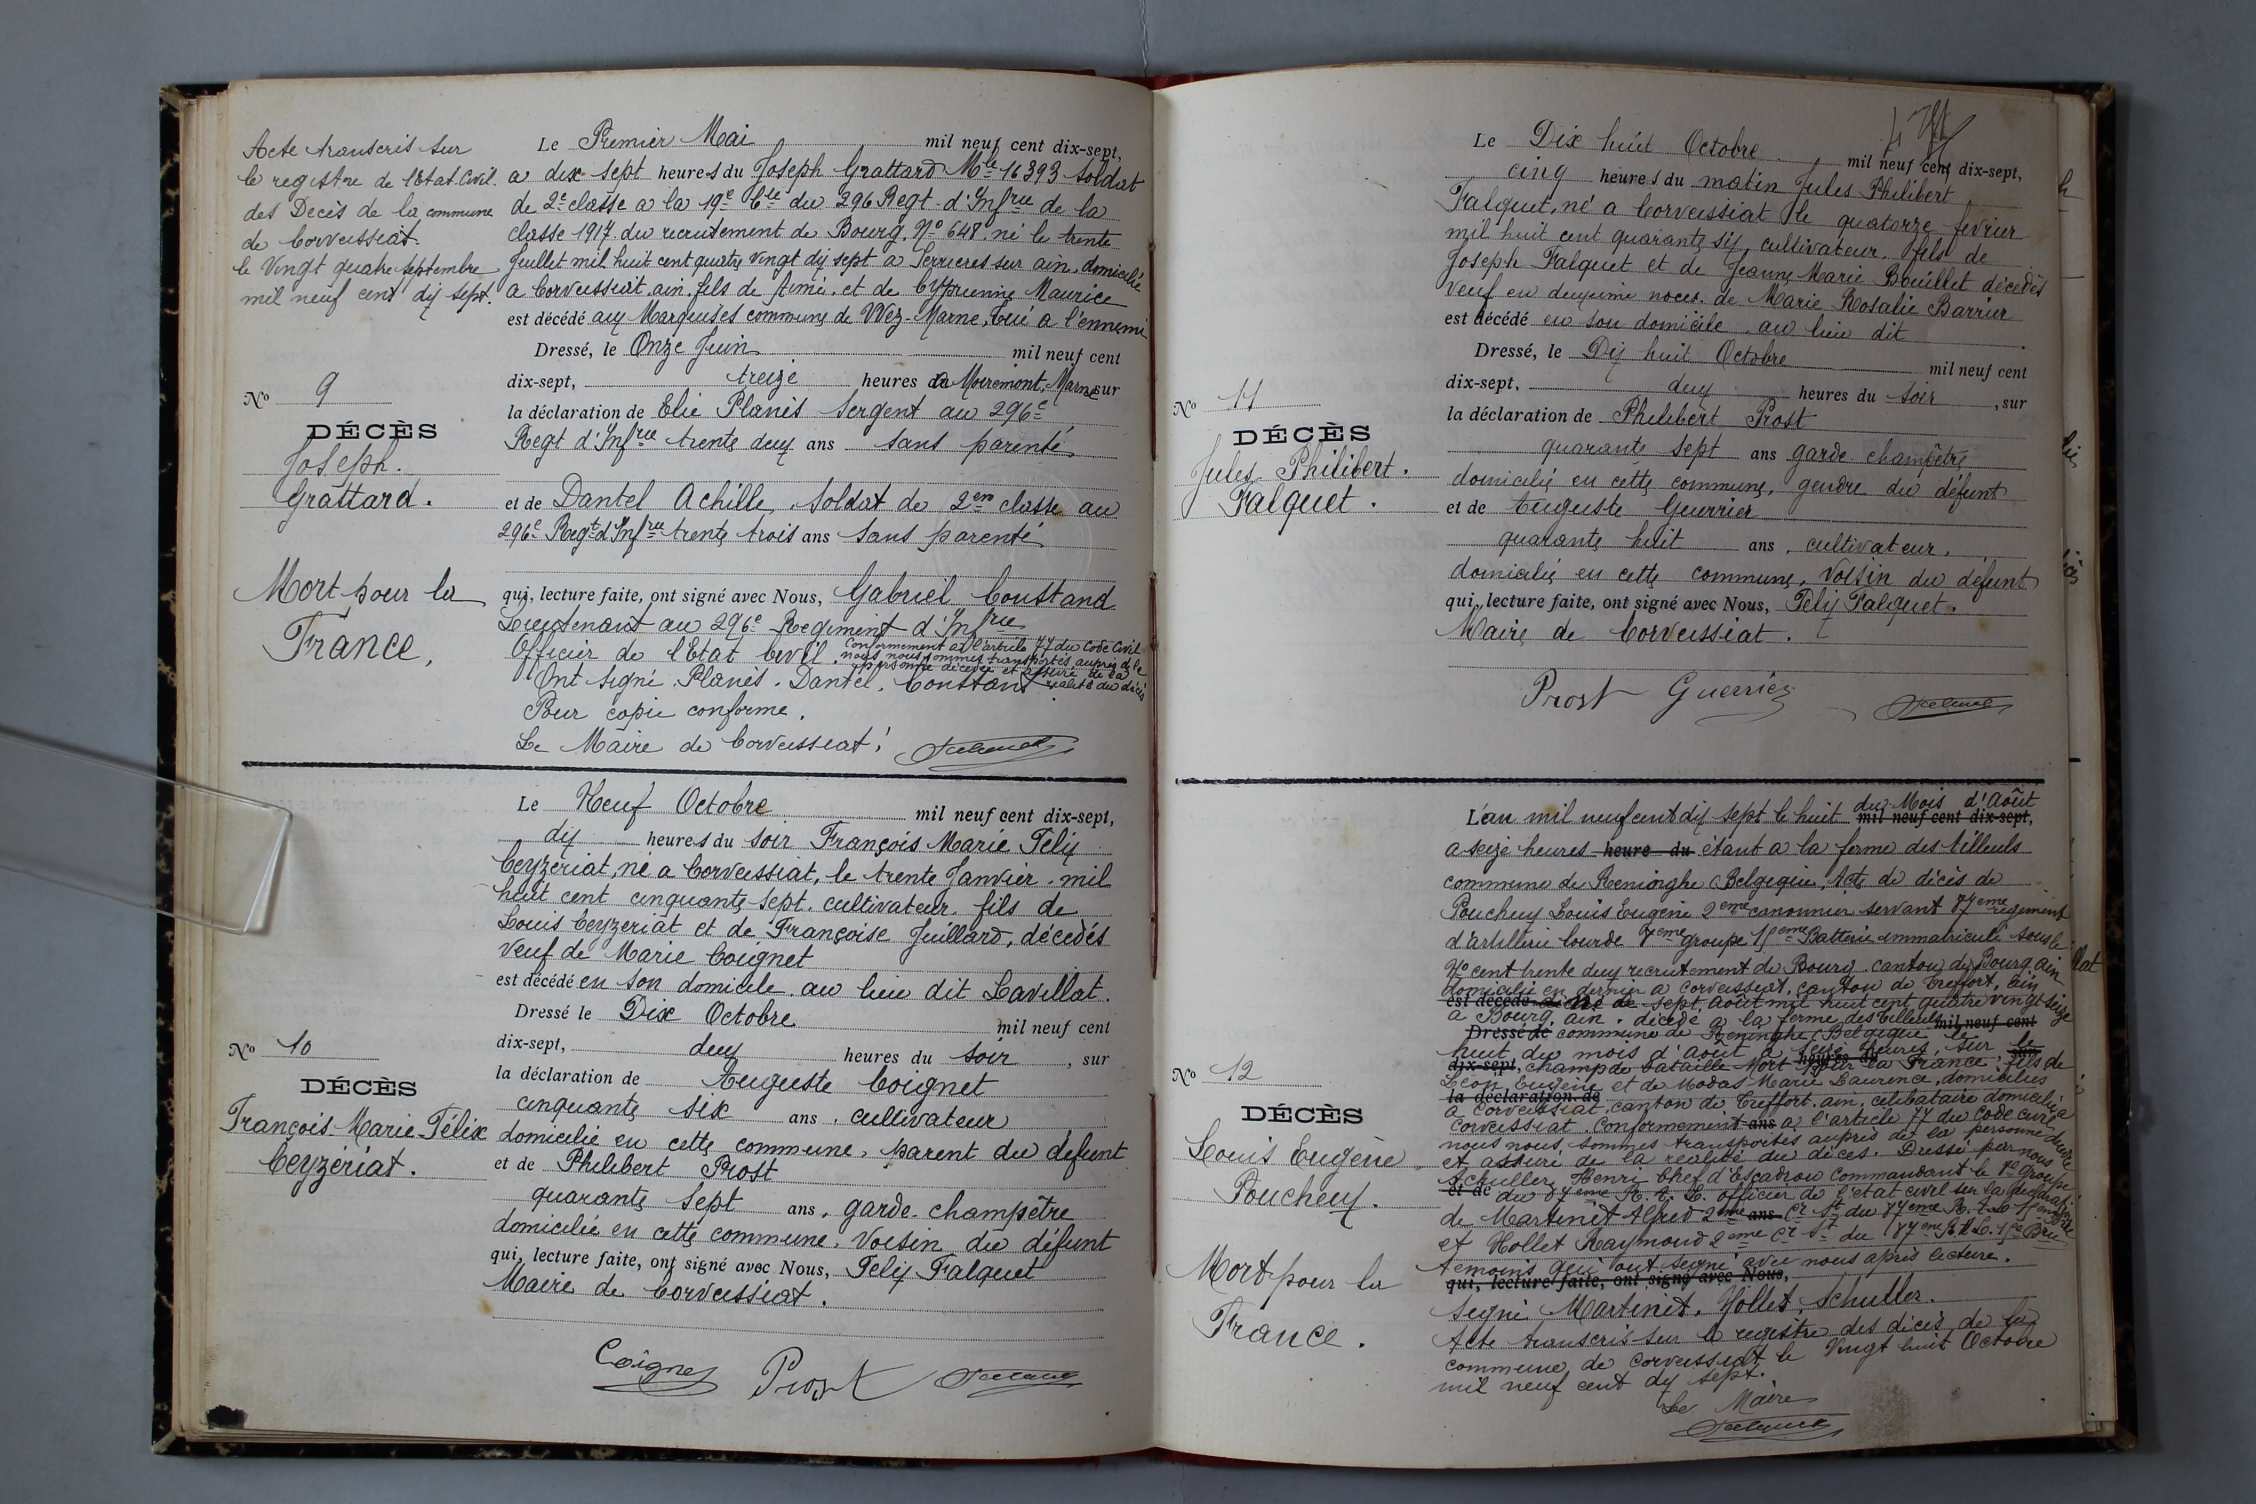 Acte transcris sur
le registre de l'Etat Civil.
des Decès de la commune
de Corveissiat.
le Vingt quatre septembre
mil neuf cent dix sept.
Nº 9
DÉCÈS
Joseph.
Grattard.
Mort pour la
France.
Le Premier Mai mil neuf cent dix-sept,
a dix sept heures du Joseph Grattard Mle 16393 Soldat
de 2e classe a la 19e Cie du 296 Regt d'Infrie de la
classe 1917 du recrutement de Bourg. Nº 648 né le trente
Juillet mil huit cent quatre vingt dix sept a Serrieres sur ain, domicilié
a Corveissiat. ain. fils de Aimé. et de Cyprienne Maurice
est décédé aux Marquises commune de Wez-Marne, tué a l'ennemi
Dressé, le Onze Juin mil neuf cent
dix-sept, treize heures a Moiremont. Marne sur
la déclaration de Elie Planès Sergent au 296e
Regt d'Infrie trente deux ans sans parenté
et de Dantel Achille, Soldat de 2em classe au
296e Regt d'Infrie trente trois ans sans parenté
qui, lecture faite, ont signé avec Nous, Gabriel Constand
Lieutenant au 296e Regiment d'Infrie
Officier de l'Etat Civil. Conformement a l'article 77 du Code Civil
nous nous sommes transportés auprès de la
personne décédée et assuré de la
réalité du décès
Ont signé. Planès. Dantel. Constant
Pour copie conforme.
Le Maire de Corveissiat.
Nº 10
DÉCÈS
François-Marie-Félix
Ceyzériat.
Le Neuf Octobre mil neuf cent dix-sept,
dix heures du soir François Marie Félix
Ceyzériat, né a Corveissiat, le trente Janvier. mil
huit cent cinquante sept. cultivateur. fils de
Louis Ceyzeriat et de Françoise Juillard, décedés
Veuf de Marie Coignet
est décédé en son domicile. au lieu dit Lavillat.
Dressé le Dix Octobre mil neuf cent
dix-sept, deux heures du soir, sur
la déclaration de Auguste Coignet
cinquante six ans. cultivateur
domicilié en cette commune, parent du défunt
et de Philibert Prost
quarante sept ans. garde-champêtre
domicilié en cette commune. Voisin du défunt
qui, lecture faite, ont signé avec Nous, Felix Falquet
Maire de Corveissiat.
Coignet Prost
Nº 11
DÉCÈS
Jules Philibert.
Falquet.
Le Dix huit Octobre mil neuf cent dix-sept,
cinq heures du matin Jules Philibert
Falquet, né a Corveissiat le quatorze fevrier
mil huit cent quarante six, cultivateur. fils de
Joseph Falquet et de Jeanne Marie Bouillet décédés
Veuf en deuxième noces. de Marie Rosalie Barrier
est décédé en son domicile. au lieu dit
Dressé, le Dix huit Octobre mil neuf cent
dix-sept, deux heures du soir, sur
la déclaration de Philibert Prost
quarante sept ans garde champêtre
domicilié en cette commune, gendre du défunt
et de Auguste Guerrier
quarante huit ans. cultivateur.
domicilié en cette commune, Voisin du défunt
qui, lecture faite, ont signé avec Nous, Felix Falquet.
Maire de Corveissiat.
Prost Guerrier
Nº 12
DÉCÈS
Louis Eugène
Poucheux.
Mort pour la
France.
L'an mil neuf cent dix sept le huit du Mois d'Août
mil neuf cent dix-sept,
a seize heures heure du étant a la ferme des tilleuls
commune de Reninghe (Belgique, Acte de décès de
Poucheux Louis Eugène 2eme canonnier servant 87eme regiment
d'artillerie lourde 7eme groupe 15eme Batterie immatriculé sous le
Nº cent trente deux recrutement de Bourg. canton de Bourg ain
domicilié en dernier a Corveissiat, canton de Treffort, ain
est décédé né le sept Août mil huit cent quatre vingt seize
a Bourg, ain. décédé a la ferme des Tilleuls mil neuf cent
Dressé le commune de Reninghe (Belgique le
huit du mois d'Aout a seize heures, sur le
dix-sept, champ de bataille Mort pour la France, fils de
Léon, Eugène et de Modas Marie Laurence, domiciliés
la déclaration de
a Corveissiat, canton de Treffort. ain, célibataire domicilié a
Corveissiat. Conformement ans a l'article 77 du Code civil
nous nous sommes transportés auprès de la personne
et assuré de la réalité du décès. Dressé par nous
Schuller Henri Chef d'Escadron Commandant le 7e groupe
et de du 87eme R. A. L. officier de l'etat civil sur la déclarat.
de Martinet Alfred 2eme ans Cr St du 87eme R. A. L.
et Hollet Raymond 2eme Cr St du 87eme R. A. L. 15e Brie
temoins qui ont signé avec nous après lecture.
qui, lecture faite, ont signé avec Nous,
signé. Martinet. Hollet. Schuller.
Acte transcris sur le registre des décès de la
commune de Corveissiat le Vingt huit Octobre
mil neuf cent dix sept.
Le Maire